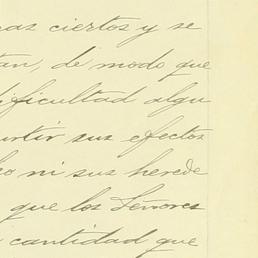 mas ciertos y se
tan, de modo que
dificultad algu
urtir sus efectos
ho ni sus herede
que los Señores
cantidad que